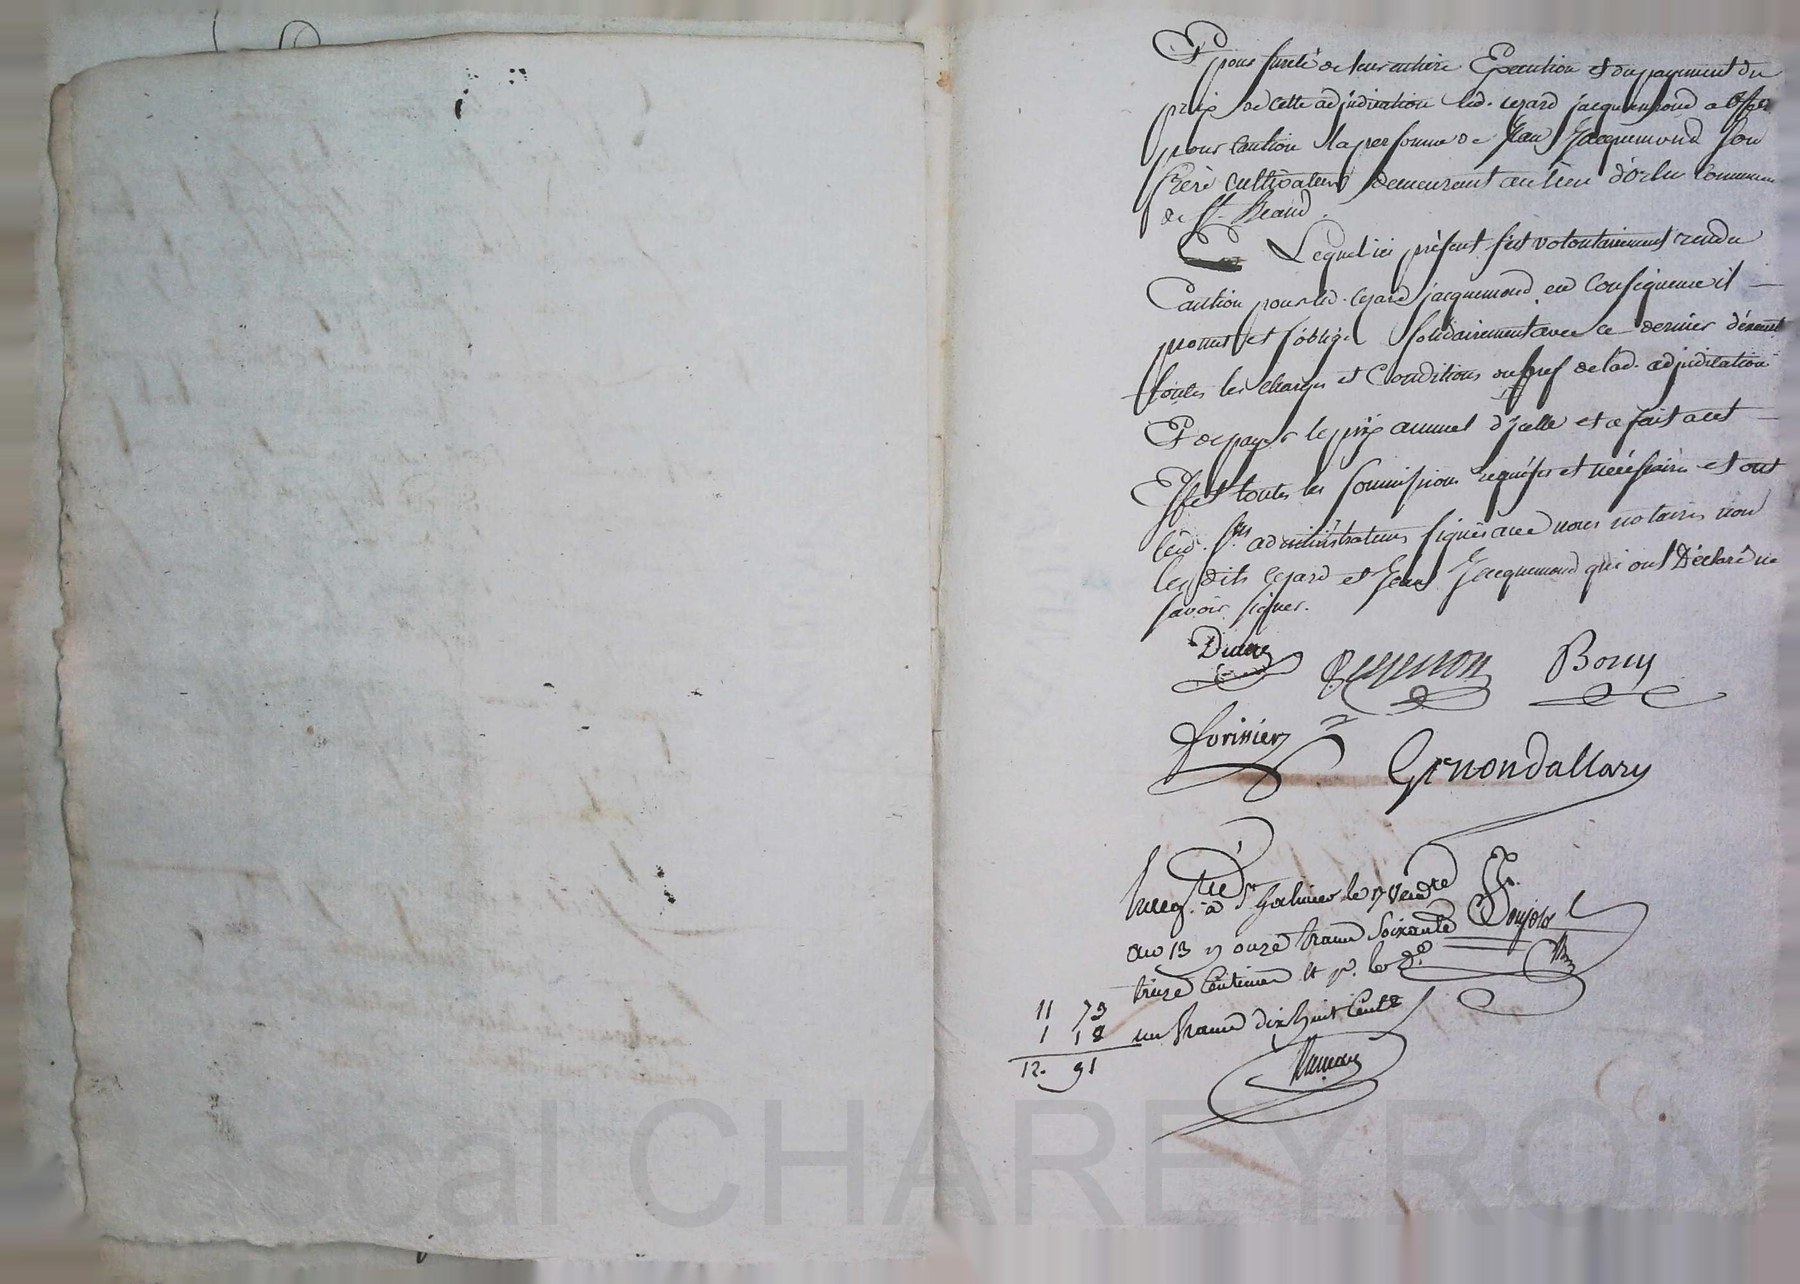 Et pour sureté de leur entiere Execution et du payement du
prix de cette adjudication led. cezard jacquemond a offert
pour caution la personne de Jean Jacquemond son
frere cultivateur demeurant au lieu d'orlu Commune
de St.
Lequel ici présent s'est volontairement rendu
Caution pour led. cezard jacquemond en Conséquence il
promet et s'oblige solidairement avec ce dernier
toutes les charges et Conditions de lad. adjudication
Et de payer le prix annuel d'jcelle et a fait a cet
Effet toutes les soumissions requises et nécéssaires et ont
lesd. srs administrateurs signés avec nous notaires non
les dits cezard et Jean Jacquemond qui ont Déclaré ne
savoir signer.
Bony
forissier
Grenondallary
Enreg. à St Galmier le 7 Vend.re
an 13 R onze francs soixante
treize Centimes et pr. le 10e
11 73 un franc dix huit Cent.
1 18
12. 91
Pascal CHAREYRON